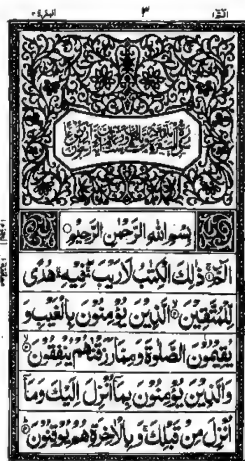 الٓمّٓ ١
٣
البقرة ٢
بِسْمِ اللهِ الرَّحْمٰنِ الرَّحِيْمِ
الٓمّٓ ۚ ذٰلِكَ الْكِتٰبُ لَا رَيْبَ ۛ فِيْهِ ۛ هُدًى
لِّلْمُتَّقِيْنَ ۙ الَّذِيْنَ يُؤْمِنُوْنَ بِالْغَيْبِ وَ
يُقِيْمُوْنَ الصَّلٰوةَ وَمِمَّا رَزَقْنٰهُمْ يُنْفِقُوْنَ ۙ
وَالَّذِيْنَ يُؤْمِنُوْنَ بِمَاۤ اُنْزِلَ اِلَيْكَ وَمَاۤ
اُنْزِلَ مِنْ قَبْلِكَ ۚ وَبِالْاٰخِرَةِ هُمْ يُوْقِنُوْنَ ؕ